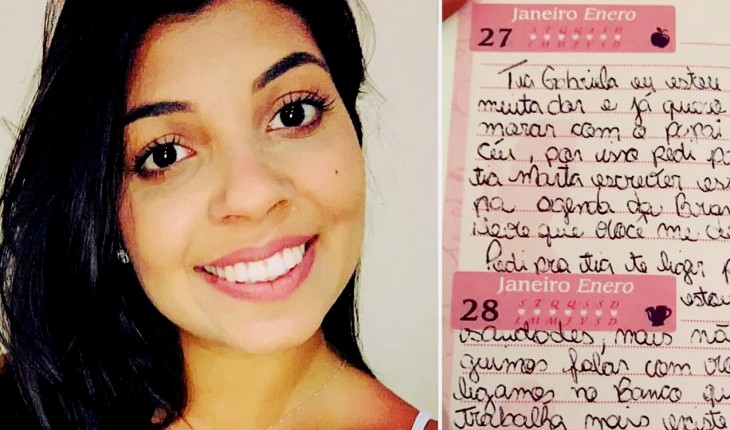 Janeiro Enero
27
S T Q Q S S D
L M M J V S D
Tia Gabriela eu estou
muita dor e já quase
morar com o papai
Céu, por isso pedi p
tia Marta escrever es
na agenda da Bran
que você me
Pedi pra tia te ligar p
Janeiro Enero
28
S T Q Q S S D
L M M J V S D
estou
saudades, mais nã
guimos falar com vo
ligamos no Banco qu
Trabalha mais existe